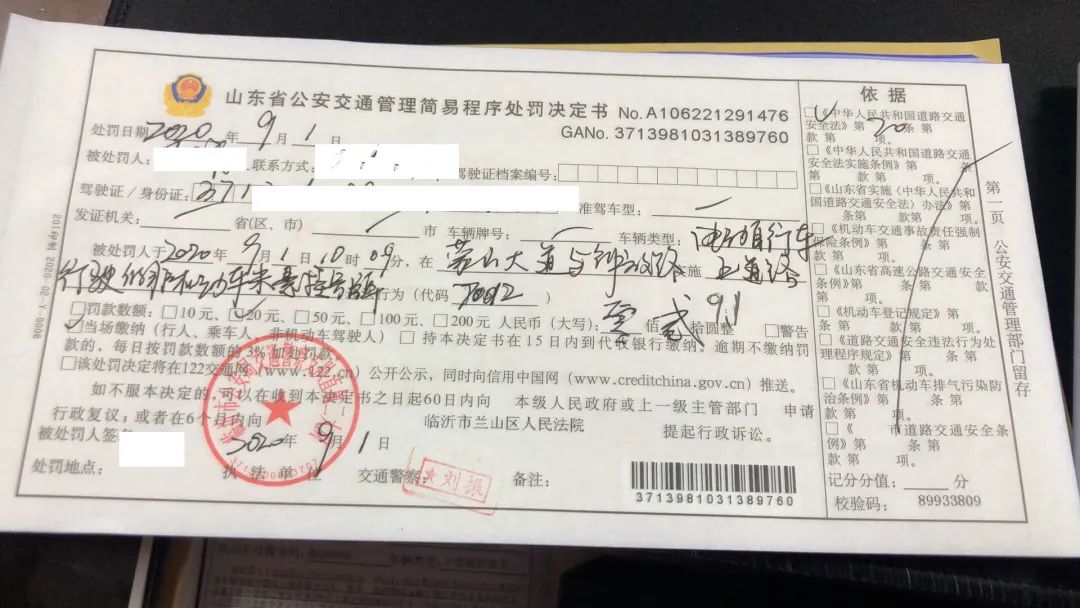 山东省公安交通管理简易程序处罚决定书 No.A106221291476
GANo. 3713981031389760
处罚日期 2020 年 9 月 1 日
被处罚人: 联系方式: 驾驶证档案编号:
驾驶证/身份证: 371 准驾车型: 一
发证机关: 省(区、市) 市 车辆牌号: 车辆类型: 电动自行车
被处罚人于 2020 年 9 月 1 日 10 时 09 分, 在 蒙山大道与 实施 在道路
行驶的非机动车未悬挂号牌 行为(代码 )
□罚款数额: □10元、☑20元、□50元、□100元、□200元 人民币(大写): 零 佰 贰 拾圆整 □警告
☑当场缴纳(行人、乘车人、非机动车驾驶人) □ 持本决定书在15日内到代收银行缴纳。逾期不缴纳罚
款的, 每日按罚款数额的3%加处罚款
□该处罚决定将在122交通网(www.122.cn)公开公示, 同时向信用中国网(www.creditchina.gov.cn)推送。
如不服本决定的, 可以在收到本决定书之日起60日内向 本级人民政府或上一级主管部门 申请
行政复议; 或者在6个月内向 临沂市兰山区人民法院 提起行政诉讼。
被处罚人签名 2020 年 9 月 1 日
处罚地点: 执法单位 交通警察: 刘振 备注:
3713981031389760
依据
☑《中华人民共和国道路交通
安全法》第 条 第
款 第 项。
□《中华人民共和国道路交通
安全法实施条例》第 条
第 款 第 项。
□《山东省实施〈中华人民共和
国道路交通安全法〉办法》第
条第 款第 项。
□《机动车交通事故责任强制
保险条例》第 条 第
款 第 项。
□《山东省高速公路交通安全
条例》第 条 第
款 第 项。
□《机动车登记规定》第
条 第 款第 项。
□《道路交通安全违法行为处
理程序规定》第 条 第
款 第 项。
□《山东省机动车排气污染防
治条例》第 条 第
款 第 项。
□《 市道路交通安全条
例》第 条 第
款 第 项。
记分分值: 分
校验码: 89933809
第一页 公安交通管理部门留存